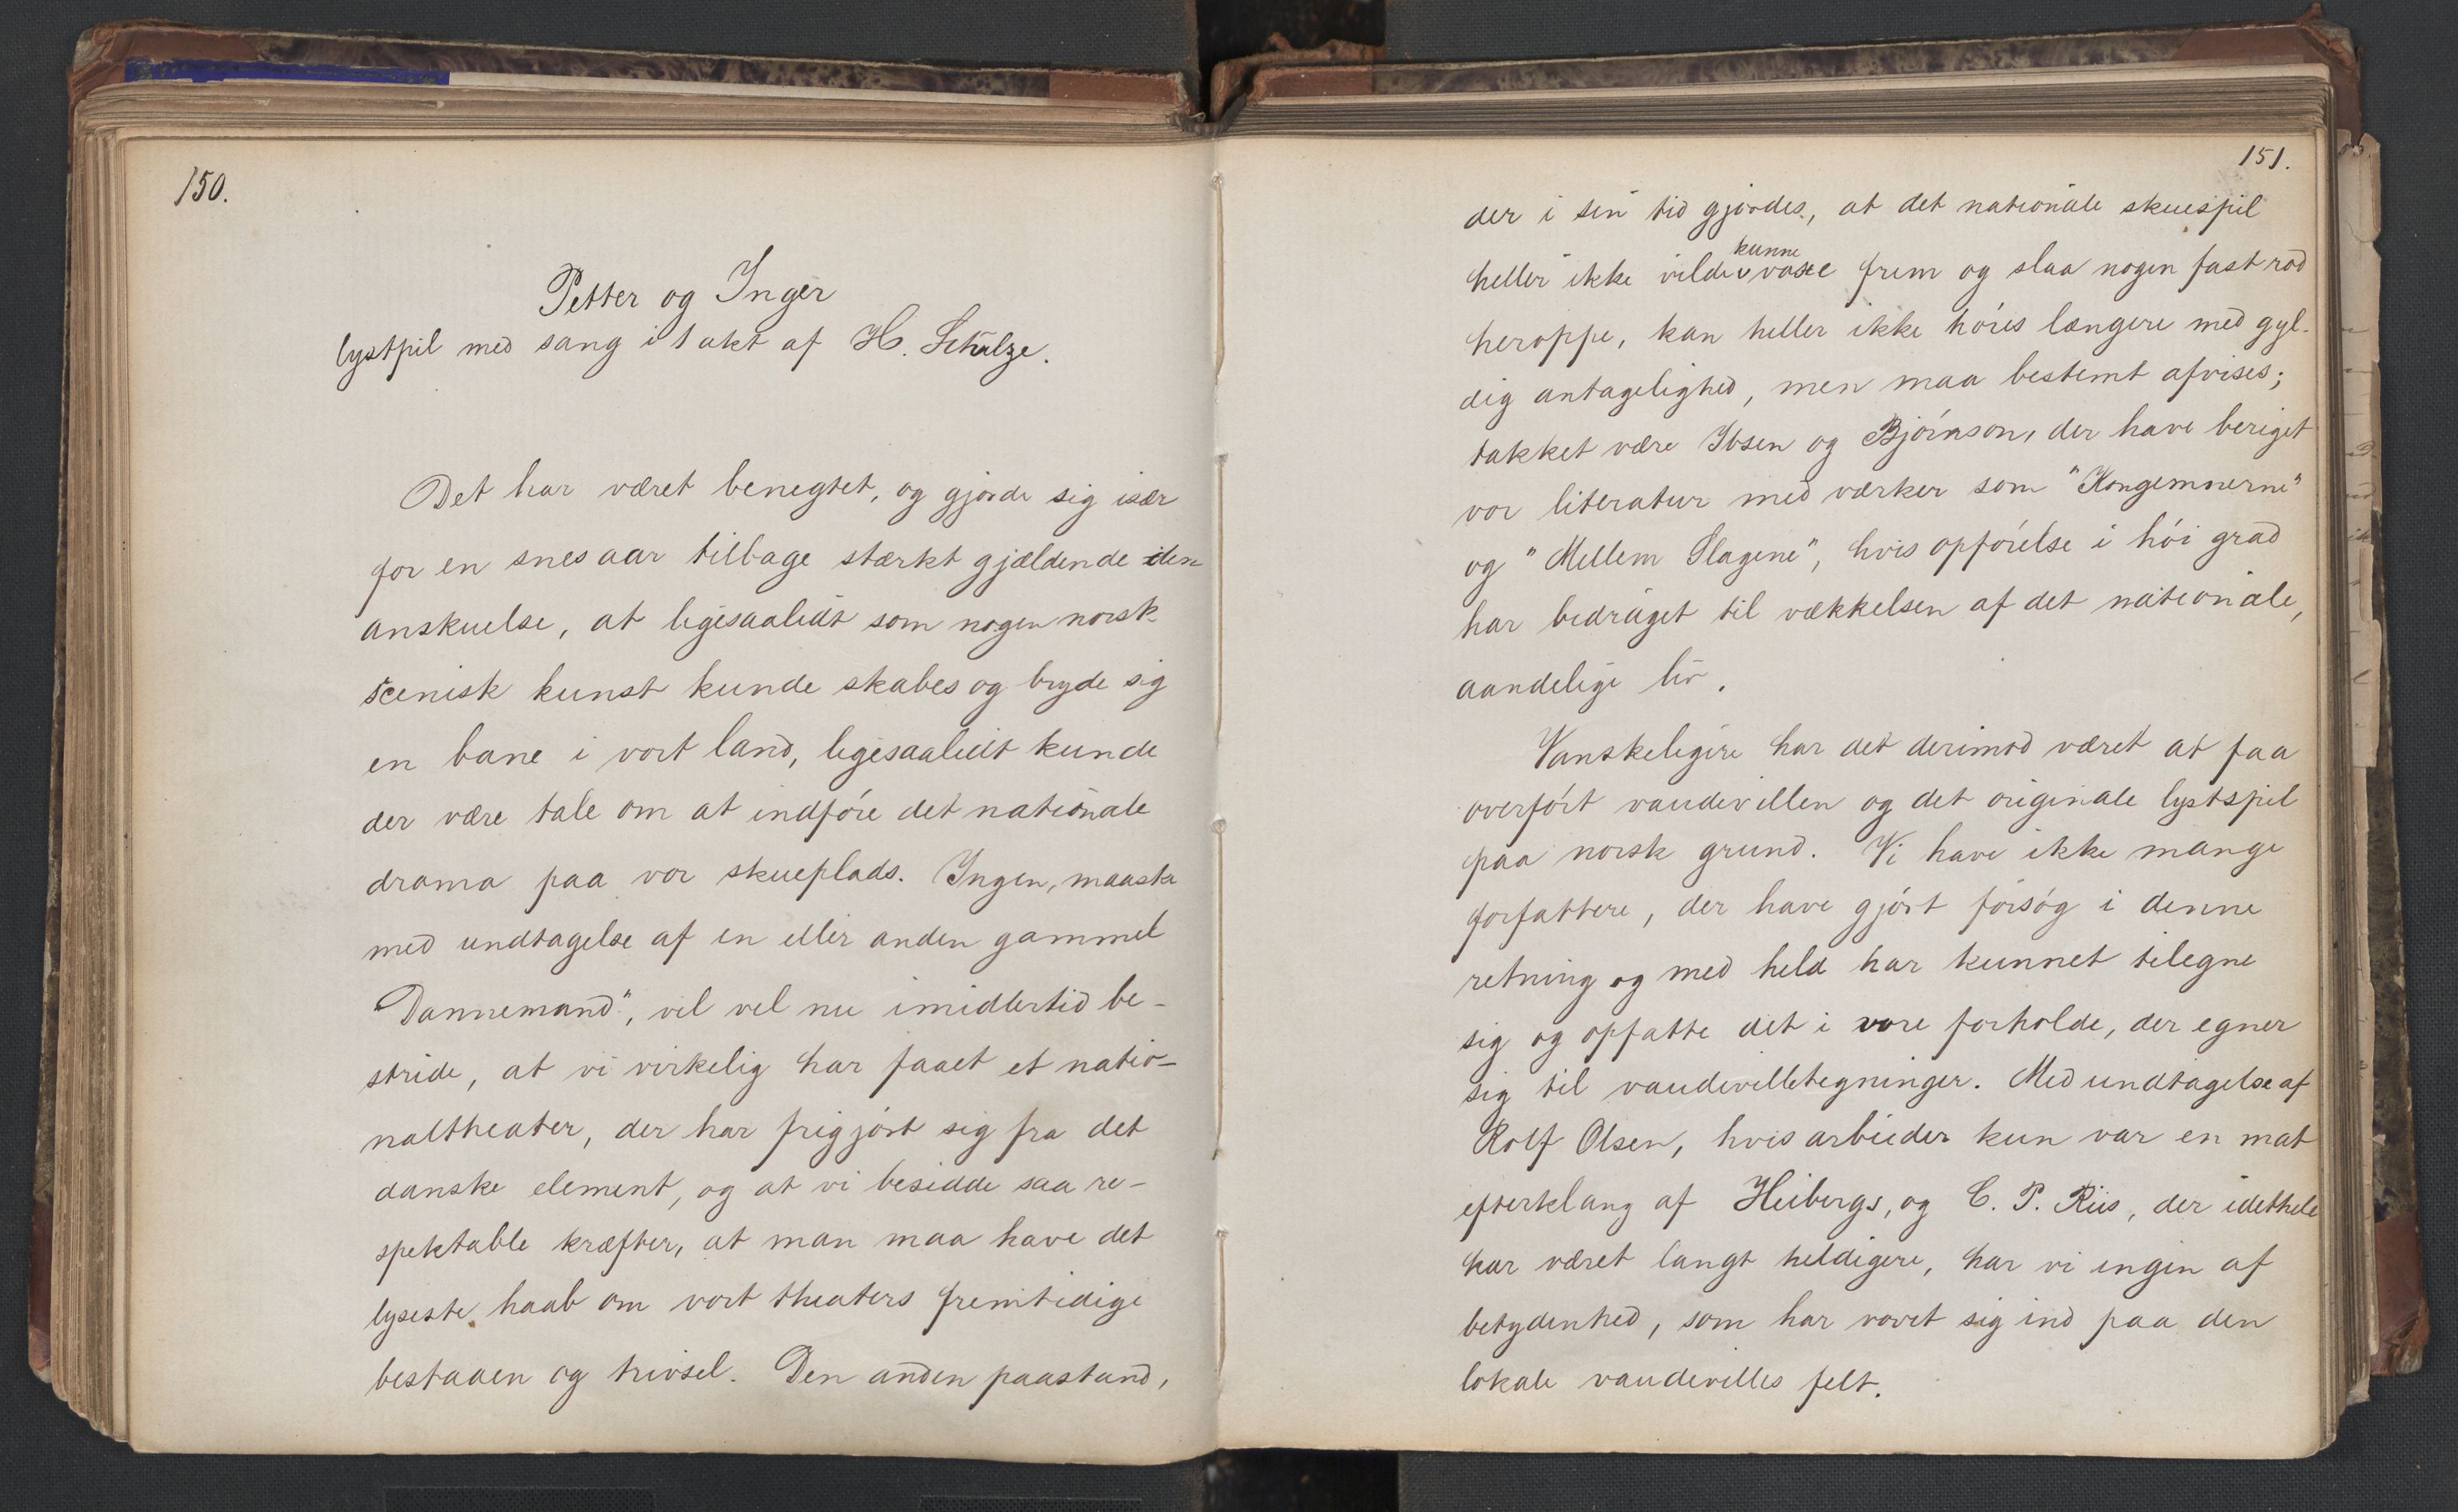 150.
Petter og Inger
lystpil med sang i 1 akt af H. Schulze.
Det har været benegtet, og gjorde sig især
for en snes aar tilbage stærkt gjældende den
anskuelse, at ligesaalidt som nogen norsk
scenisk kunst kunde skabes og bryde sig
en bane i vort land, ligesaalidt kunde
der være tale om at indføre det nationale
drama paa vor skueplads. Ingen, maaske
med undtagelse af en eller anden gammel
"Dannemand", vil vel nu imidlertid be-
stride, at vi virkelig har faaet et natio-
naltheater, der har frigjørt sig fra det
danske element, og at vi besidde saa re-
spektable kræfter, at man maa have det
lyseste haab om vort theaters fremtidige
bestaaen og trivsel. Den anden paastand,
151.
der i sin tid gjordes, at det nationale skuespil
heller ikke vilde kunne voxe frem og slaa nogen fast rod
heroppe, kan heller ikke høres længere med gyl-
dig antagelighed, men maa bestemt afvises;
takket være Ibsen og Bjørnson, der have beriget
vor literatur med værker som "Kongemnerne"
og "Mellem Slagene", hvis opførelse i høi grad
har bedraget til vækkelsen af det nationale,
aandelige liv.
Vanskeligere har det derimod været at faa
overført vaudevillen og det originale lystspil
paa norsk grund. Vi have ikke mange
forfattere, der have gjort forsøg i denne
retning og med held har kunnet tilegne
sig og opfatte det i vore forholde, der egner
sig til vaudevilletegninger. Med undtagelse af
Rolf Olsen, hvis arbieder kun var en mat
efterklang af Heibergs, og C. P. Riis, der idethele
har været langt heldigere, har vi ingen af
betydenhed, som har vovet sig ind paa den
lokale vaudevilles felt.